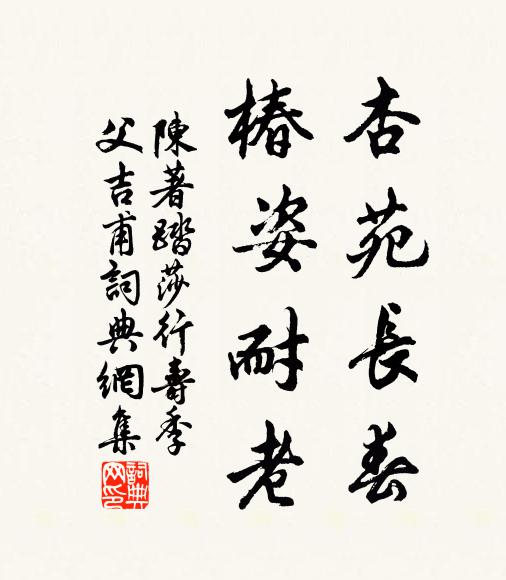 杏苑長春
椿姿耐老
陳著踏莎行壽季
父吉甫詞典網集
詞典網印